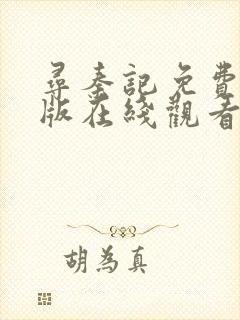 尋秦記免費
版在綫觀看
胡為真